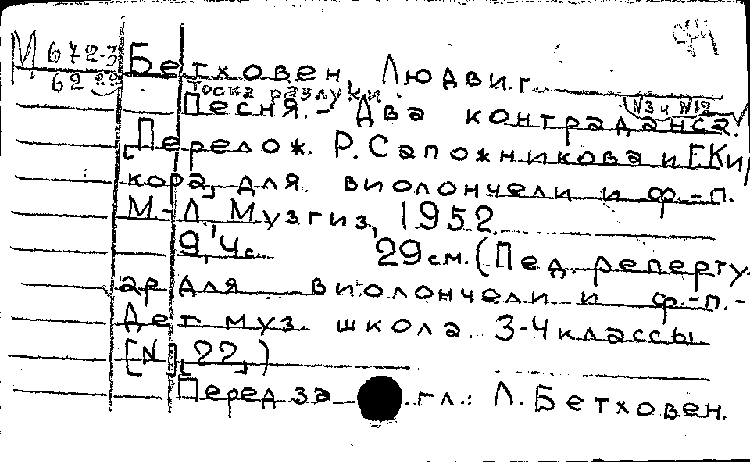 М 672-3 Бетховен, Людвиг.
62 Тоска разлуки.
Песня. - Два контраданса. (№3 и №12
[Перелож. Р. Сапожникова и Г. Ки
кора, для виолончели и ф.-п.
М-Л Музгиз, 1952
9, 4 с. 29 см. (Пед. реперту-
ар для виолончели и ф.-п. -
Дет муз. школа. 3-4 классы
[N], 22,)
Перед за гл.: Л. Бетховен.